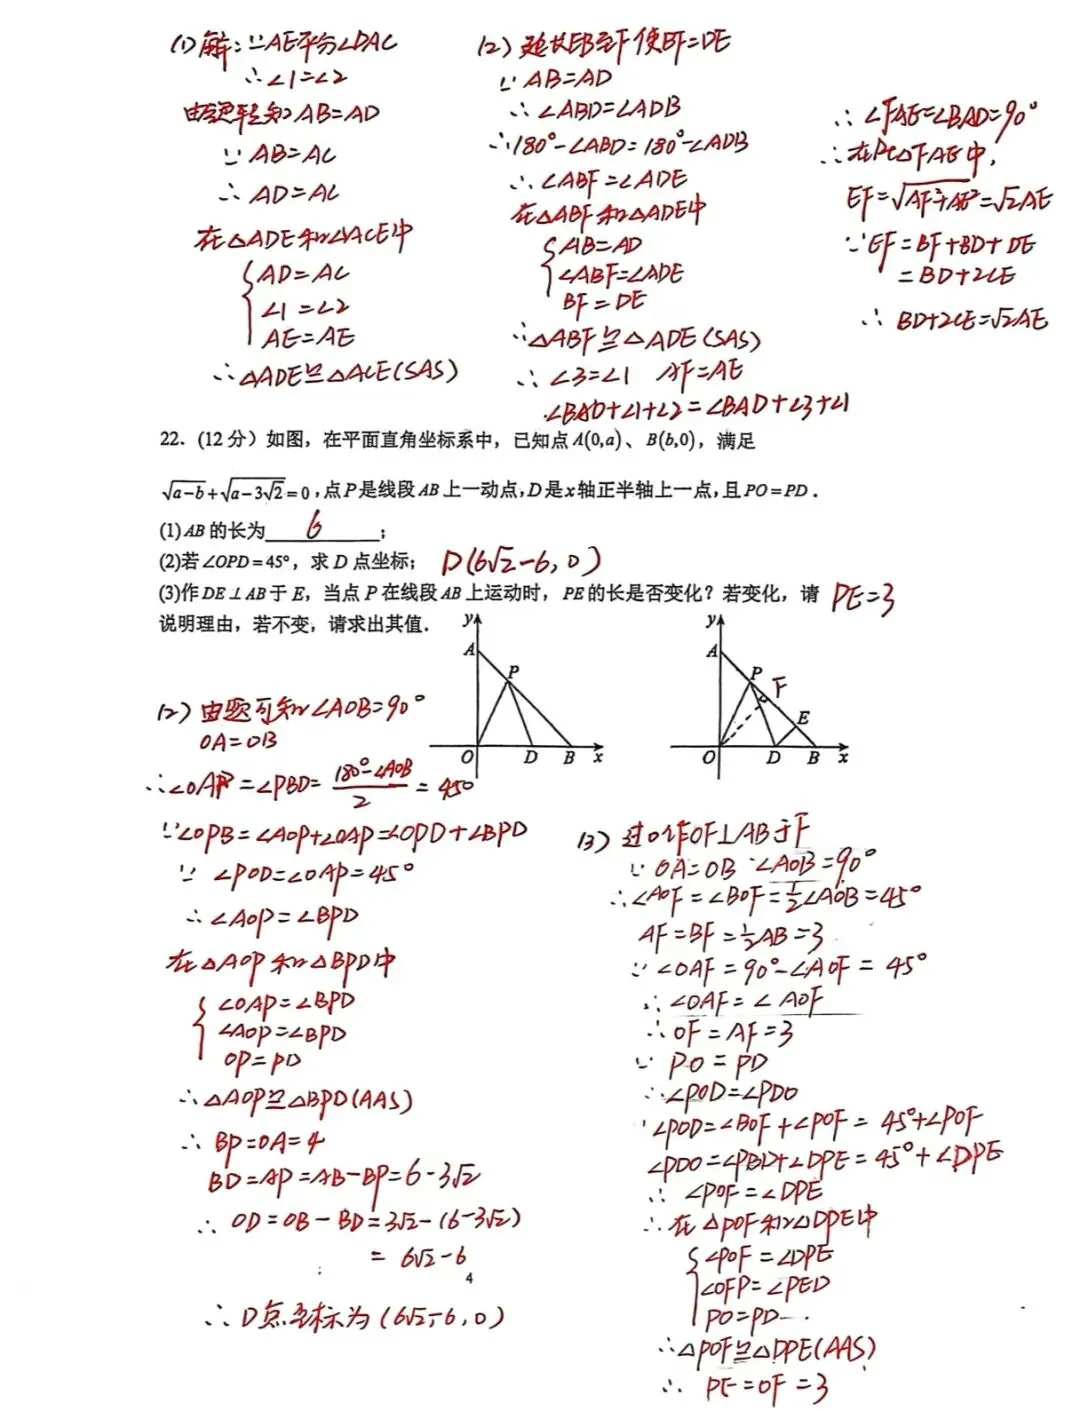 (1)解:∵AE平分∠DAC
∴∠1=∠2
AB=AD
∵AB=AC
∴AD=AC
在△ADE和△ACE中
AD=AC
∠1=∠2
AE=AE
∴△ADE≌△ACE(SAS)
(2)延长EB至F使BF=DE
∵AB=AD
∴∠ABD=∠ADB
∴180°-∠ABD=180°-∠ADB
∴∠ABF=∠ADE
在△ABF和△ADE中
AB=AD
∠ABF=∠ADE
BF=DE
∴△ABF≌△ADE(SAS)
∴∠3=∠1 AF=AE
∠BAD+∠1+∠2=∠BAD+∠3+∠1
∴∠FAE=∠BAD=90°
∴在Rt△FAE中,
EF=√AF²+AE²=√2AE
∵EF=BF+BD+DE
=BD+2CE
∴BD+2CE=√2AE
22.(12分)如图，在平面直角坐标系中，已知点A(0,a)、B(b,0)，满足
√a-b+√a-3√2=0,点P是线段AB上一动点,D是x轴正半轴上一点,且PO=PD.
(1)AB的长为 6 ;
(2)若∠OPD=45°，求D点坐标; D(6√2-6,0)
(3)作DE⊥AB于E，当点P在线段AB上运动时，PE的长是否变化?若变化，请 PE=3
说明理由，若不变，请求出其值.
y
A
P
O
D
B
x
y
A
P
F
E
O
D
B
x
(2)由题可知∠AOB=90°
OA=OB
∴∠OAP=∠PBD=180°-∠AOB/2=45°
∵∠OPB=∠AOP+∠OAP=∠OPD+∠BPD
∵∠POD=∠OAP=45°
∴∠AOP=∠BPD
在△AOP和△BPD中
∠OAP=∠BPD
∠AOP=∠BPD
OP=PD
∴△AOP≌△BPD(AAS)
∴BP=OA=4
BD=AP=AB-BP=6-3√2
∴OD=OB-BD=3√2-(6-3√2)
=6√2-6
4
∴D点坐标为(6√2-6,0)
(3)过O作OF⊥AB于F
∵OA=OB ∠AOB=90°
∴∠AOF=∠BOF=½∠AOB=45°
AF=BF=½AB=3
∵∠OAF=90°-∠AOF=45°
∴∠OAF=∠AOF
∴OF=AF=3
∵PO=PD
∴∠POD=∠PDO
∠POD=∠BOF+∠POF=45°+∠POF
∠PDO=∠PBD+∠DPE=45°+∠DPE
∴∠POF=∠DPE
∴在△POF和△DPE中
∠POF=∠DPE
∠OFP=∠PED
PO=PD
∴△POF≌△DPE(AAS)
∴PE=OF=3